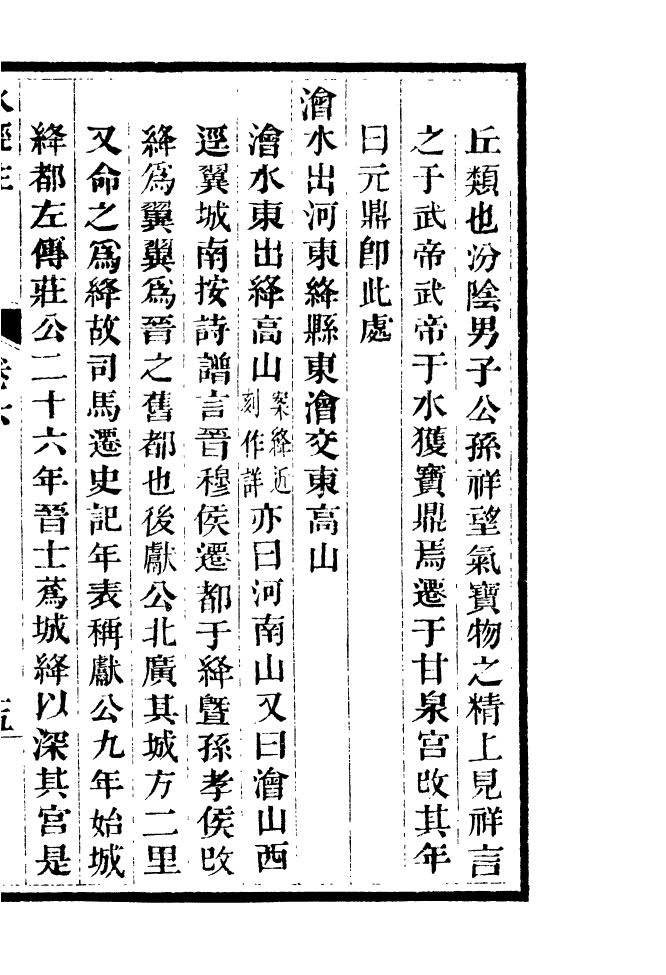 丘類也汾陰男子公孫祥望氣寶物之精上見祥言
之于武帝武帝于水獲寶鼎焉遷于甘泉宮改其年
曰元鼎卽此處
澮水出河東絳縣東澮交東高山
澮水東出絳高山案絳近刻作詳亦曰河南山又曰澮山西
逕翼城南按詩譜言晉穆侯遷都于絳曁孫孝侯改
絳爲翼翼爲晉之舊都也後獻公北廣其城方二里
又命之爲絳故司馬遷史記年表稱獻公九年始城
絳都左傳莊公二十六年晉士蔿城絳以深其宮是
水經注
卷六